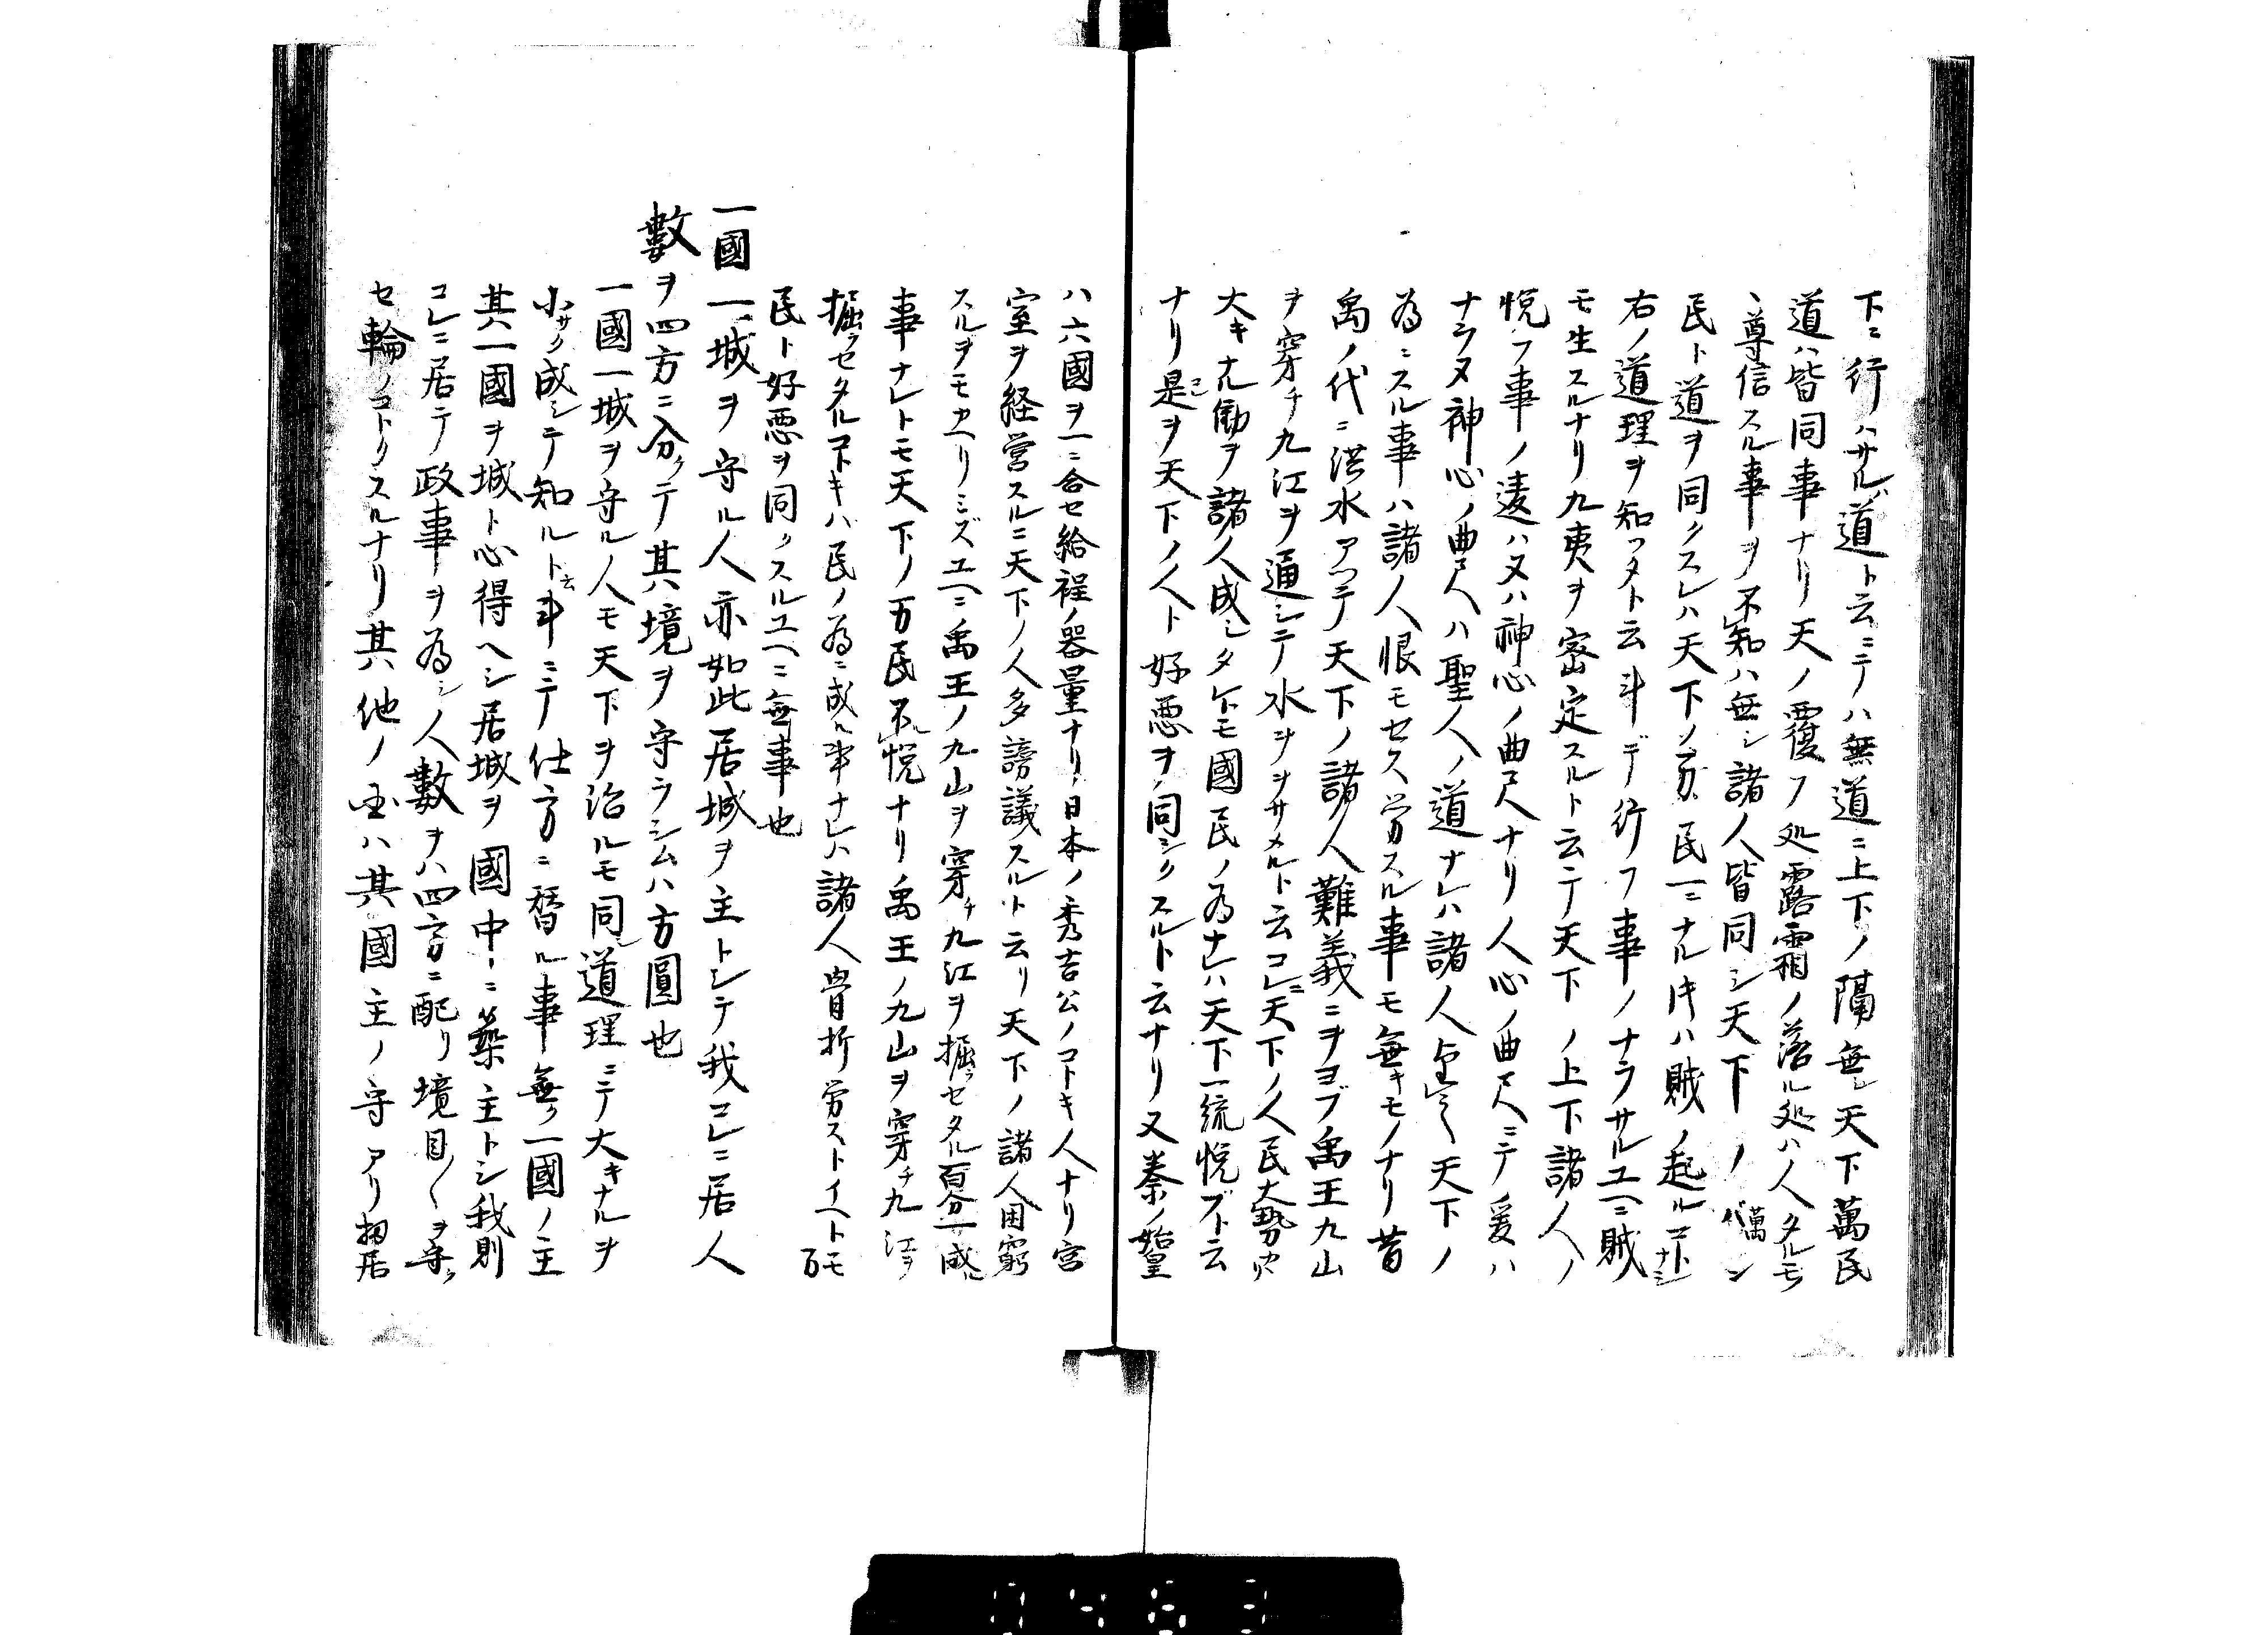 下ニ行ハサルハ道ト云ニテハ無道ニ上下ノ隔無シ天下萬民
道ハ皆同事ナリ天ノ覆フ処露霜ノ落ル処ハ人タルモ
ヽ尊信スル事ヲ不知ハ無シ諸人皆同シ天下ノ萬
民ト道ヲ同クスレハ天下ノ万民一ニナル时ハ賊ノ起ルヿナシ
右ノ道理ヲ知ツタト云斗デ行フ事ノナラサルユヘニ賊
モ生スルナリ九夷ヲ密定スルト云テ天下ノ上下諸人ノ
悦フ事ノ違ハ又ハ神心ノ曲尺ナリ人心ノ曲尺ニテ爰ハ
ナラヌ神心ノ曲尺ハ聖人ノ道ナレハ諸人天下ノ
為ニスル事ハ諸ノ人恨モセス労スル事モ無キモノナリ昔
禹ノ代ニ洪水アツテ天下ノ諸人難義ニヲヨブ禹王九山
ヲ穿チ九江ヲ通シテ水ヲヲサメルト云コレニ天下ノ人民大勢カヽリ
大キナル働ヲ諸人成シタレ𪜈國民ノ為ナレハ天下一統悦ブト云
ナリ是ヲ天下ノ人ト好悪ヲ同シクスルト云ナリ又秦ノ始皇
ハ六國ヲ一ニ合セ給程ノ器量ナリ日本ノ秀吉公ノコトキ人ナリ宮
室ヲ経営スルニ天下ノ人多謗議スルト云リ天下ノ諸人困窮
スルヲモカヘリミズユヘニ禹王ノ九山ヲ穿チ九江ヲ掘ラセタル百分一成ル
事ナレトモ天下ノ万民不悦ナリ禹王ノ九山ヲ穿チ九江ヲ
掘ラセタルコトキハ民ノ為ニ成ル事ナレハ諸人骨折労ストイヘトモ万
民ト好悪ヲ同クスルユヘニ無事也
一國一城ヲ守ル人亦如此居城ヲ主トシテ我コレニ居人
數ヲ四方ニ分クテ其境ヲ守ラシムハ方圓也
一國一城ヲ守ルノ人モ天下ヲ治ルモ同道理ニテ大キナルヲ
小サク成シテ知ルト云斗ニテ仕方ニ替ル事無ク一國ノ主
其一國ヲ城ト心得ヘシ居城ヲ國中ニ築主トシ我則
コレニ居テ政事ヲ為シ人數ヲハ四方ニ配リ境目〱ヲ守ラ
セ輪ノコトクスルナリ其他ノ玉ハ其國主ノ守アリ扨居